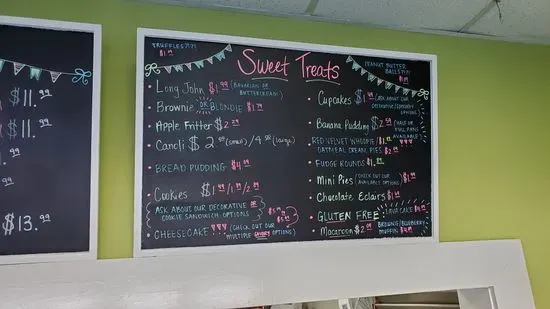 $11.99
$11.99
.99
.99
$13.99
TRUFFLES???!
$1.99
Sweet Treats
PEANUT BUTTER
BALLS???!
Long John $1.99 (BAVARIAN OR
BUTTERCREAM)
Brownie OR BLONDIE $1.79
Apple Fritter $2.29
Canoli $2.99 (small) / 4.99 (large)
BREAD PUDDING $4.99
Cookies $1.99/1.99/2.99
ASK ABOUT OUR DECORATIVE OR
COOKIE SANDWICH OPTIONS
CHEESECAKE ♥♥♥ (CHECK OUT OUR
MULTIPLE SAVORY OPTIONS)
Cupcakes $1.99 (ASK ABOUT OUR
DECORATIVE/SPECIALTY
OPTIONS)
Banana Pudding $2.99 (HALF OR
FULL PANS
AVAILABLE)
RED VELVET WHOOPIE/
OATMEAL CREAM PIES $2.99
FUDGE ROUNDS $1.99
Mini Pies (CHECK OUR
AVAILABLE OPTIONS) $1.99
Chocolate Eclairs $1.99
GLUTEN FREE LAVA CAKE $4.99
Macaroon $2.00 BROWNIE/BLUEBERRY
MUFFIN $4.99